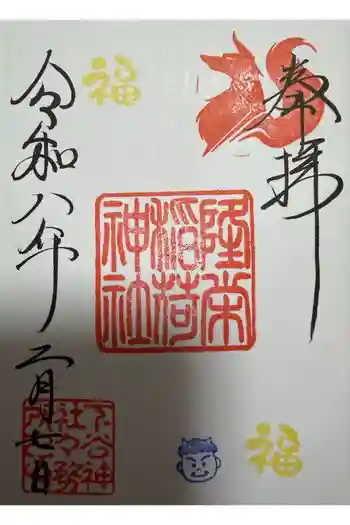 奉拝
福
隆栄
稲荷
神社
令和八年二月七日
下谷神
社々務
所印
福